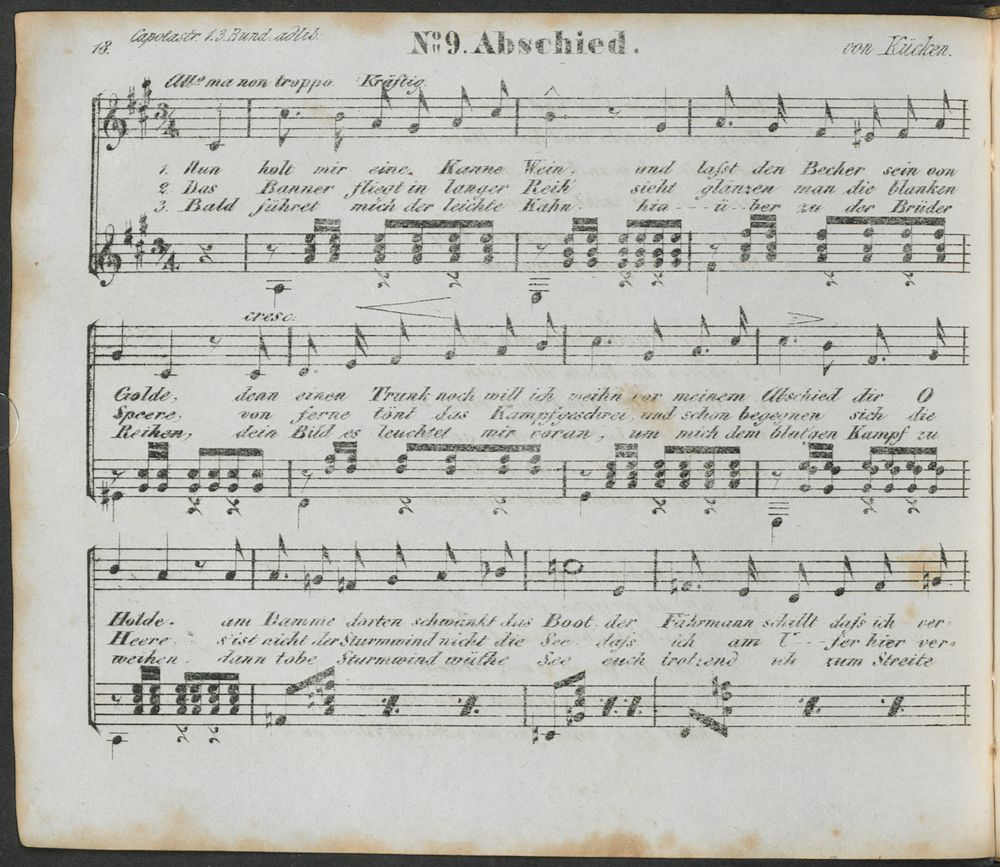 18. Capotastr. 1.3. Bund. adlib.
No. 9. Abschied.
von Kücken.
All.o ma non troppo. Kräftig.
1. Nun holt mir eine Kanne Wein, und lasst den Becher sein von
2. Das Banner fliegt in langer Reih sieht glänzen man die blanken
3. Bald führet mich der leichte Kahn, hin - - ü - ber zu der Brüder
cresc.
Golde, denn einen Trunk noch will ich weihn vor meinem Abschied dir O
Speere, von ferne tönt das Kampfgeschrei, und schon begegnen sich die
Reihen, dein Bild es leuchtet mir voran, um mich dem blutgen Kampf zu
Holde. am Damme dorten schwankt das Boot, der Fährmann schillt dafs ich ver-
Heere. s'ist nicht der Sturmwind nicht die See dafs ich am U - - fer hier ver-
weihen. dann tobe Sturmwind wüthe See euch trotzend ich zum Streite